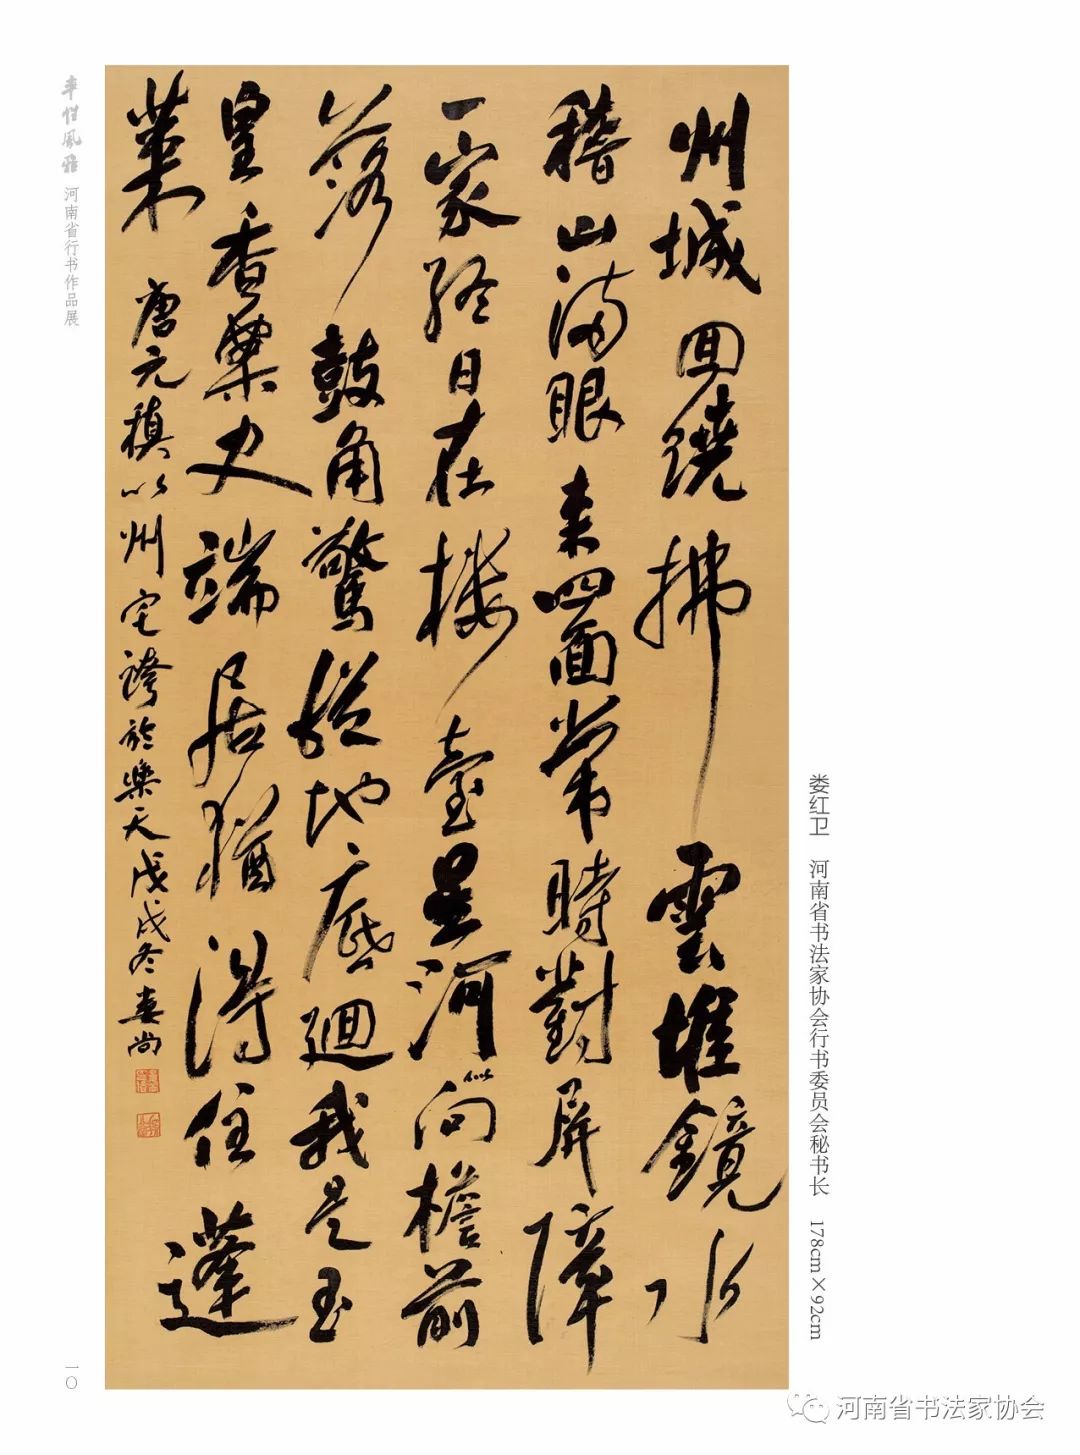 州城回繞拂雲堆鏡水
稽山滿眼来四面常時對屏障
一家終日在樓臺星河似向檐前
落鼓角驚從地底迴我是玉
皇香案吏端居猶得住蓬
萊 唐元稹以州宅誇於樂天戊戌冬婁尚
娄红卫 河南省书法家协会行书委员会秘书长 178cm×92cm
率性風雅 河南省行书作品展
一〇
河南省书法家协会